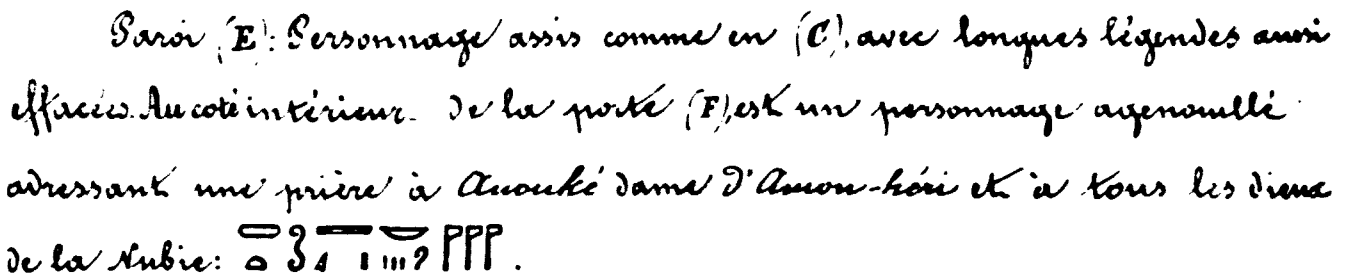 Paroi (E): Personnage assis comme en (C), avec longues légendes aussi
effacées. Au coté intérieur de la porte (F), est un personnage agenouillé
adressant une prière à Anouké dame d'Amon-héri et à tous les dieux
de la Nubie: